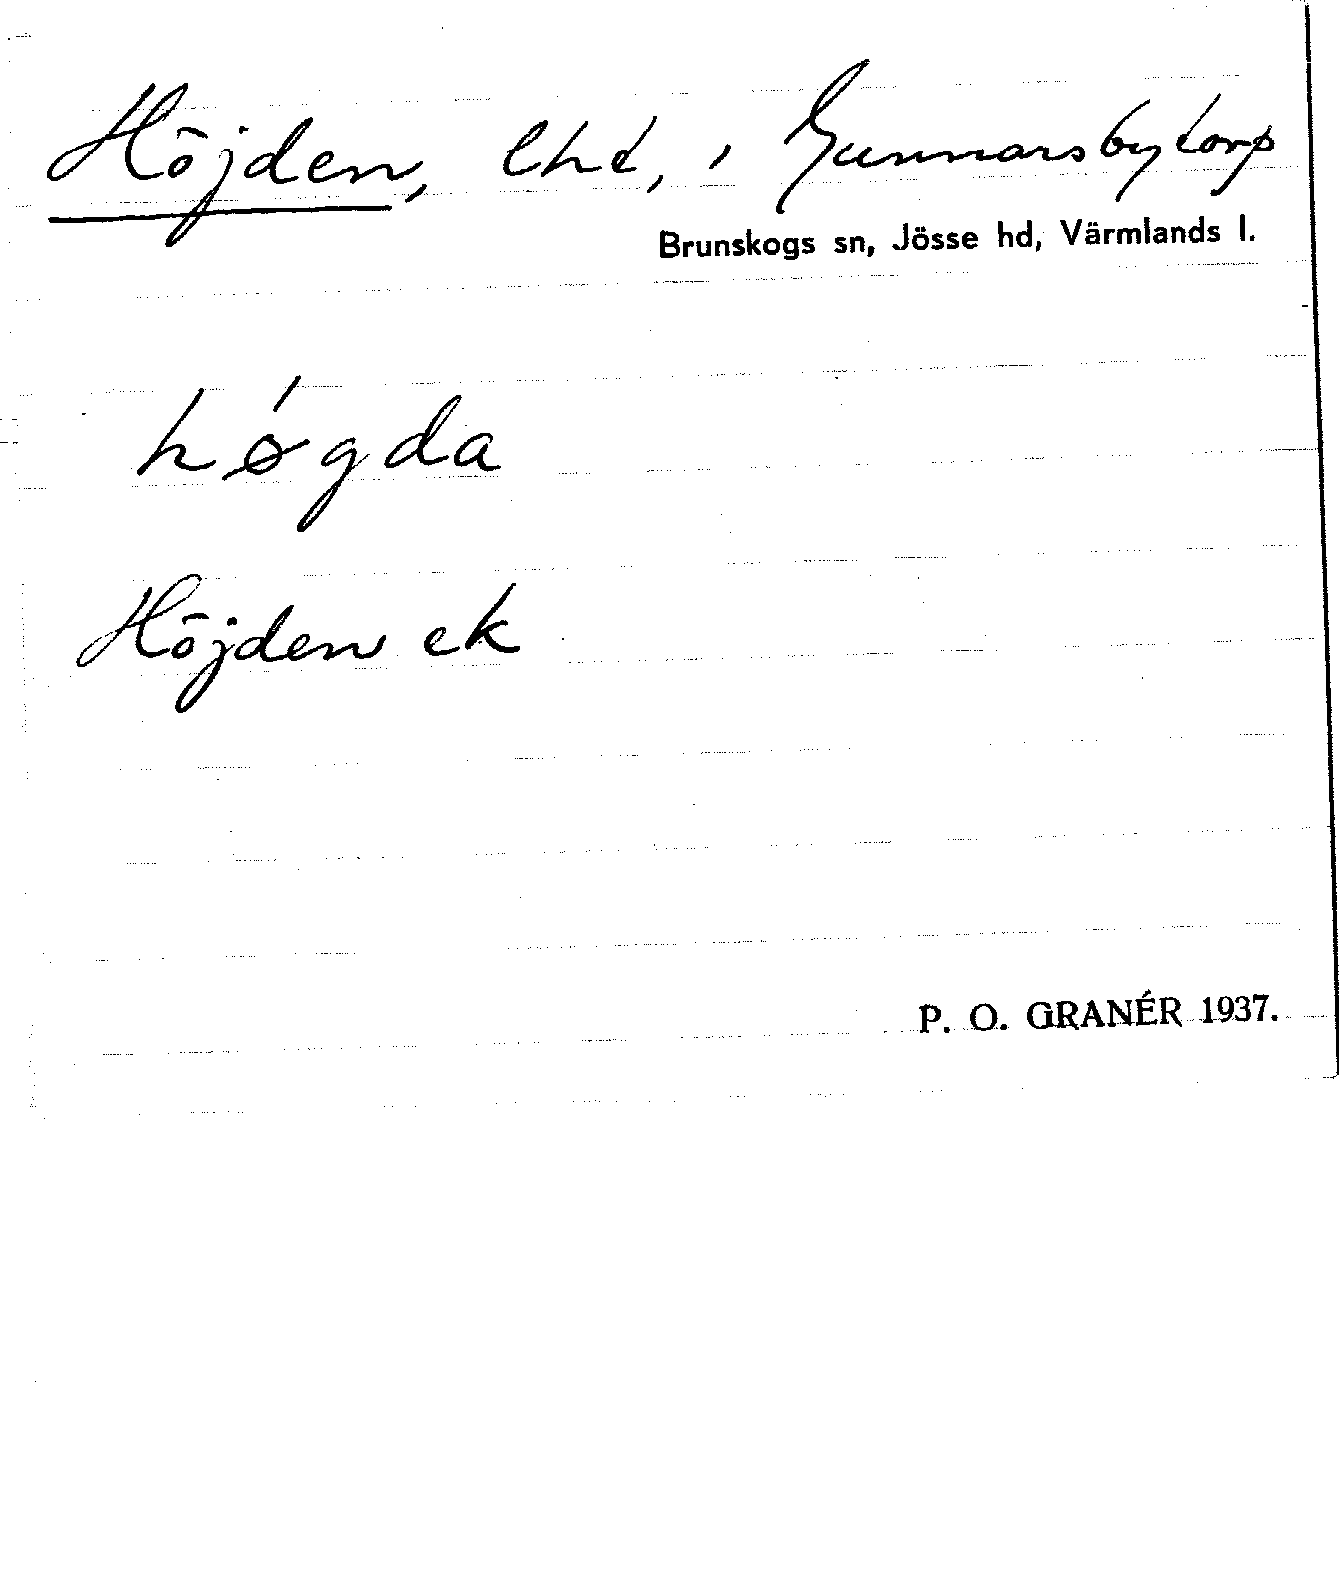 Höjden, lht, i Gunnarsbytorp
Brunskogs sn, Jösse hd, Värmlands l.
hǿgda
Höjden ek
P. O. GRANÉR 1937.